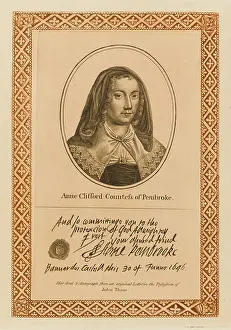 Anne Clifford Countess of Pembroke.
And so committinge you to the
protection of God Almighty
I rest your assured frind
Anne Pembrooke
Castell this 30 of June 1646
Her Seal & Autograph from an original Letter in the Possession of
John Thane